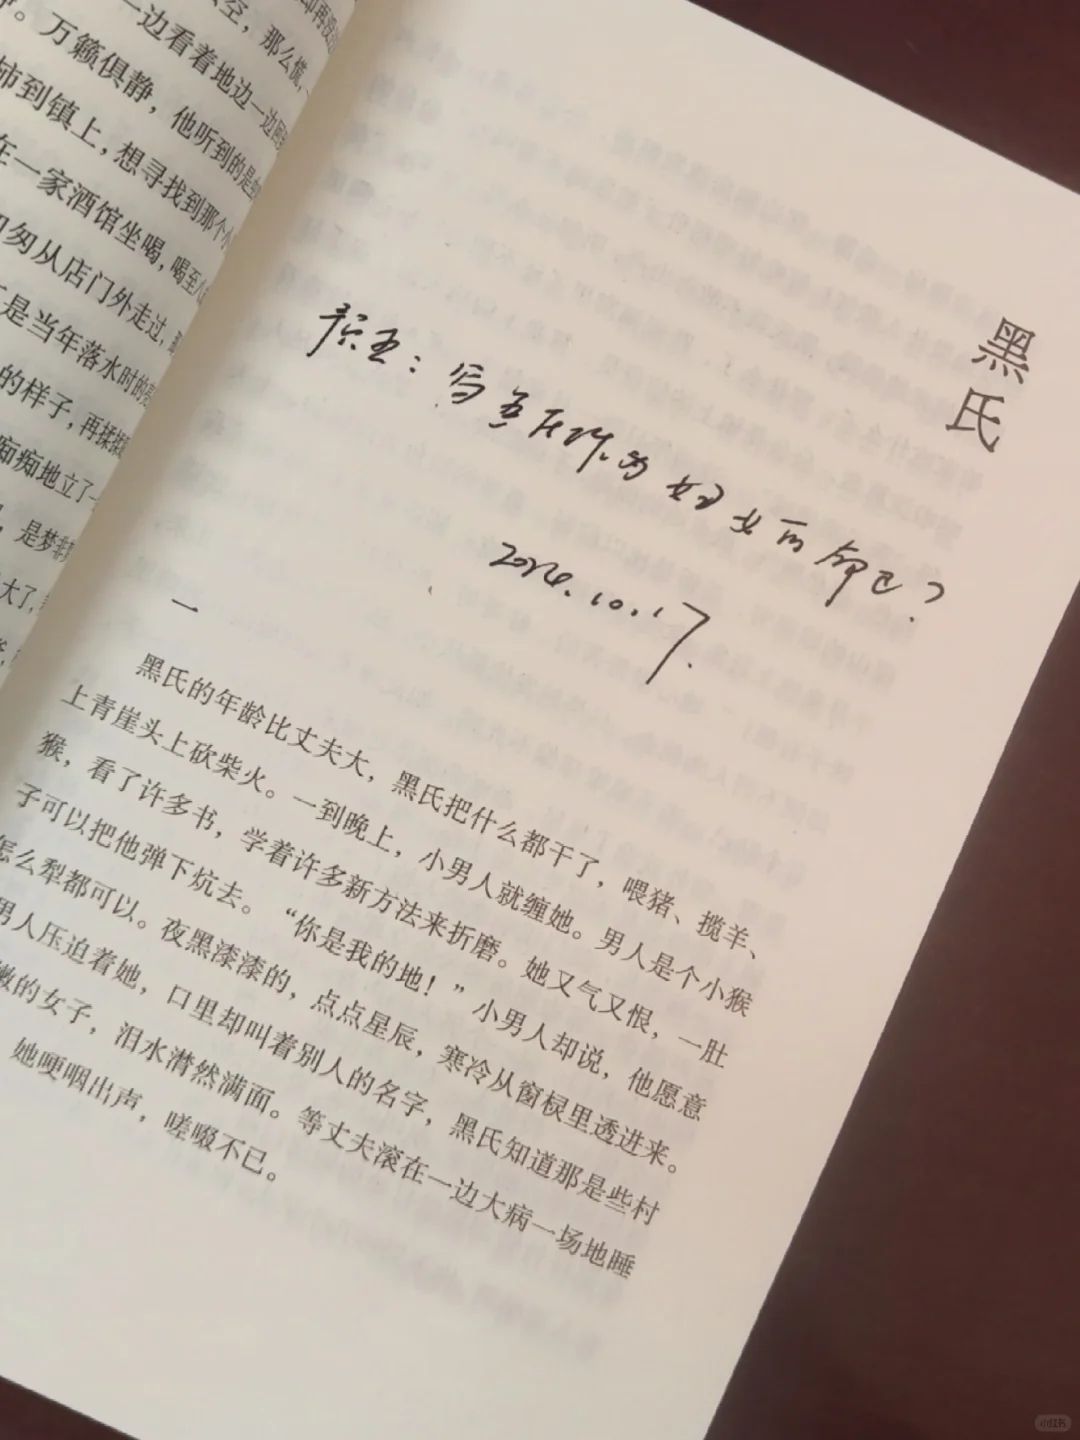 空，那么慌，
一边看着地边一边
。万籁俱静，他听到的是
柿到镇上，想寻找到那个小
在一家酒馆坐喝，喝至八
匆从店门外走过，
是当年落水时的
的样子，再揉揉
痴痴地立了一
，是梦
大了，
黑氏
写
作为妇女而
？
2024.10.17.
一
黑氏的年龄比丈夫大，黑氏把什么都干了，喂猪、揽羊、
上青崖头上砍柴火。一到晚上，小男人就缠她。男人是个小猴
猴，看了许多书，学着许多新方法来折磨。她又气又恨，一肚
子可以把他弹下炕去。“你是我的地！”小男人却说，他愿意
怎么犁都可以。夜黑漆漆的，点点星辰，寒冷从窗棂里透进来。
男人压迫着她，口里却叫着别人的名字，黑氏知道那是些村
嫩的女子，泪水潸然满面。等丈夫滚在一边大病一场地睡
她哽咽出声，嗟啜不已。